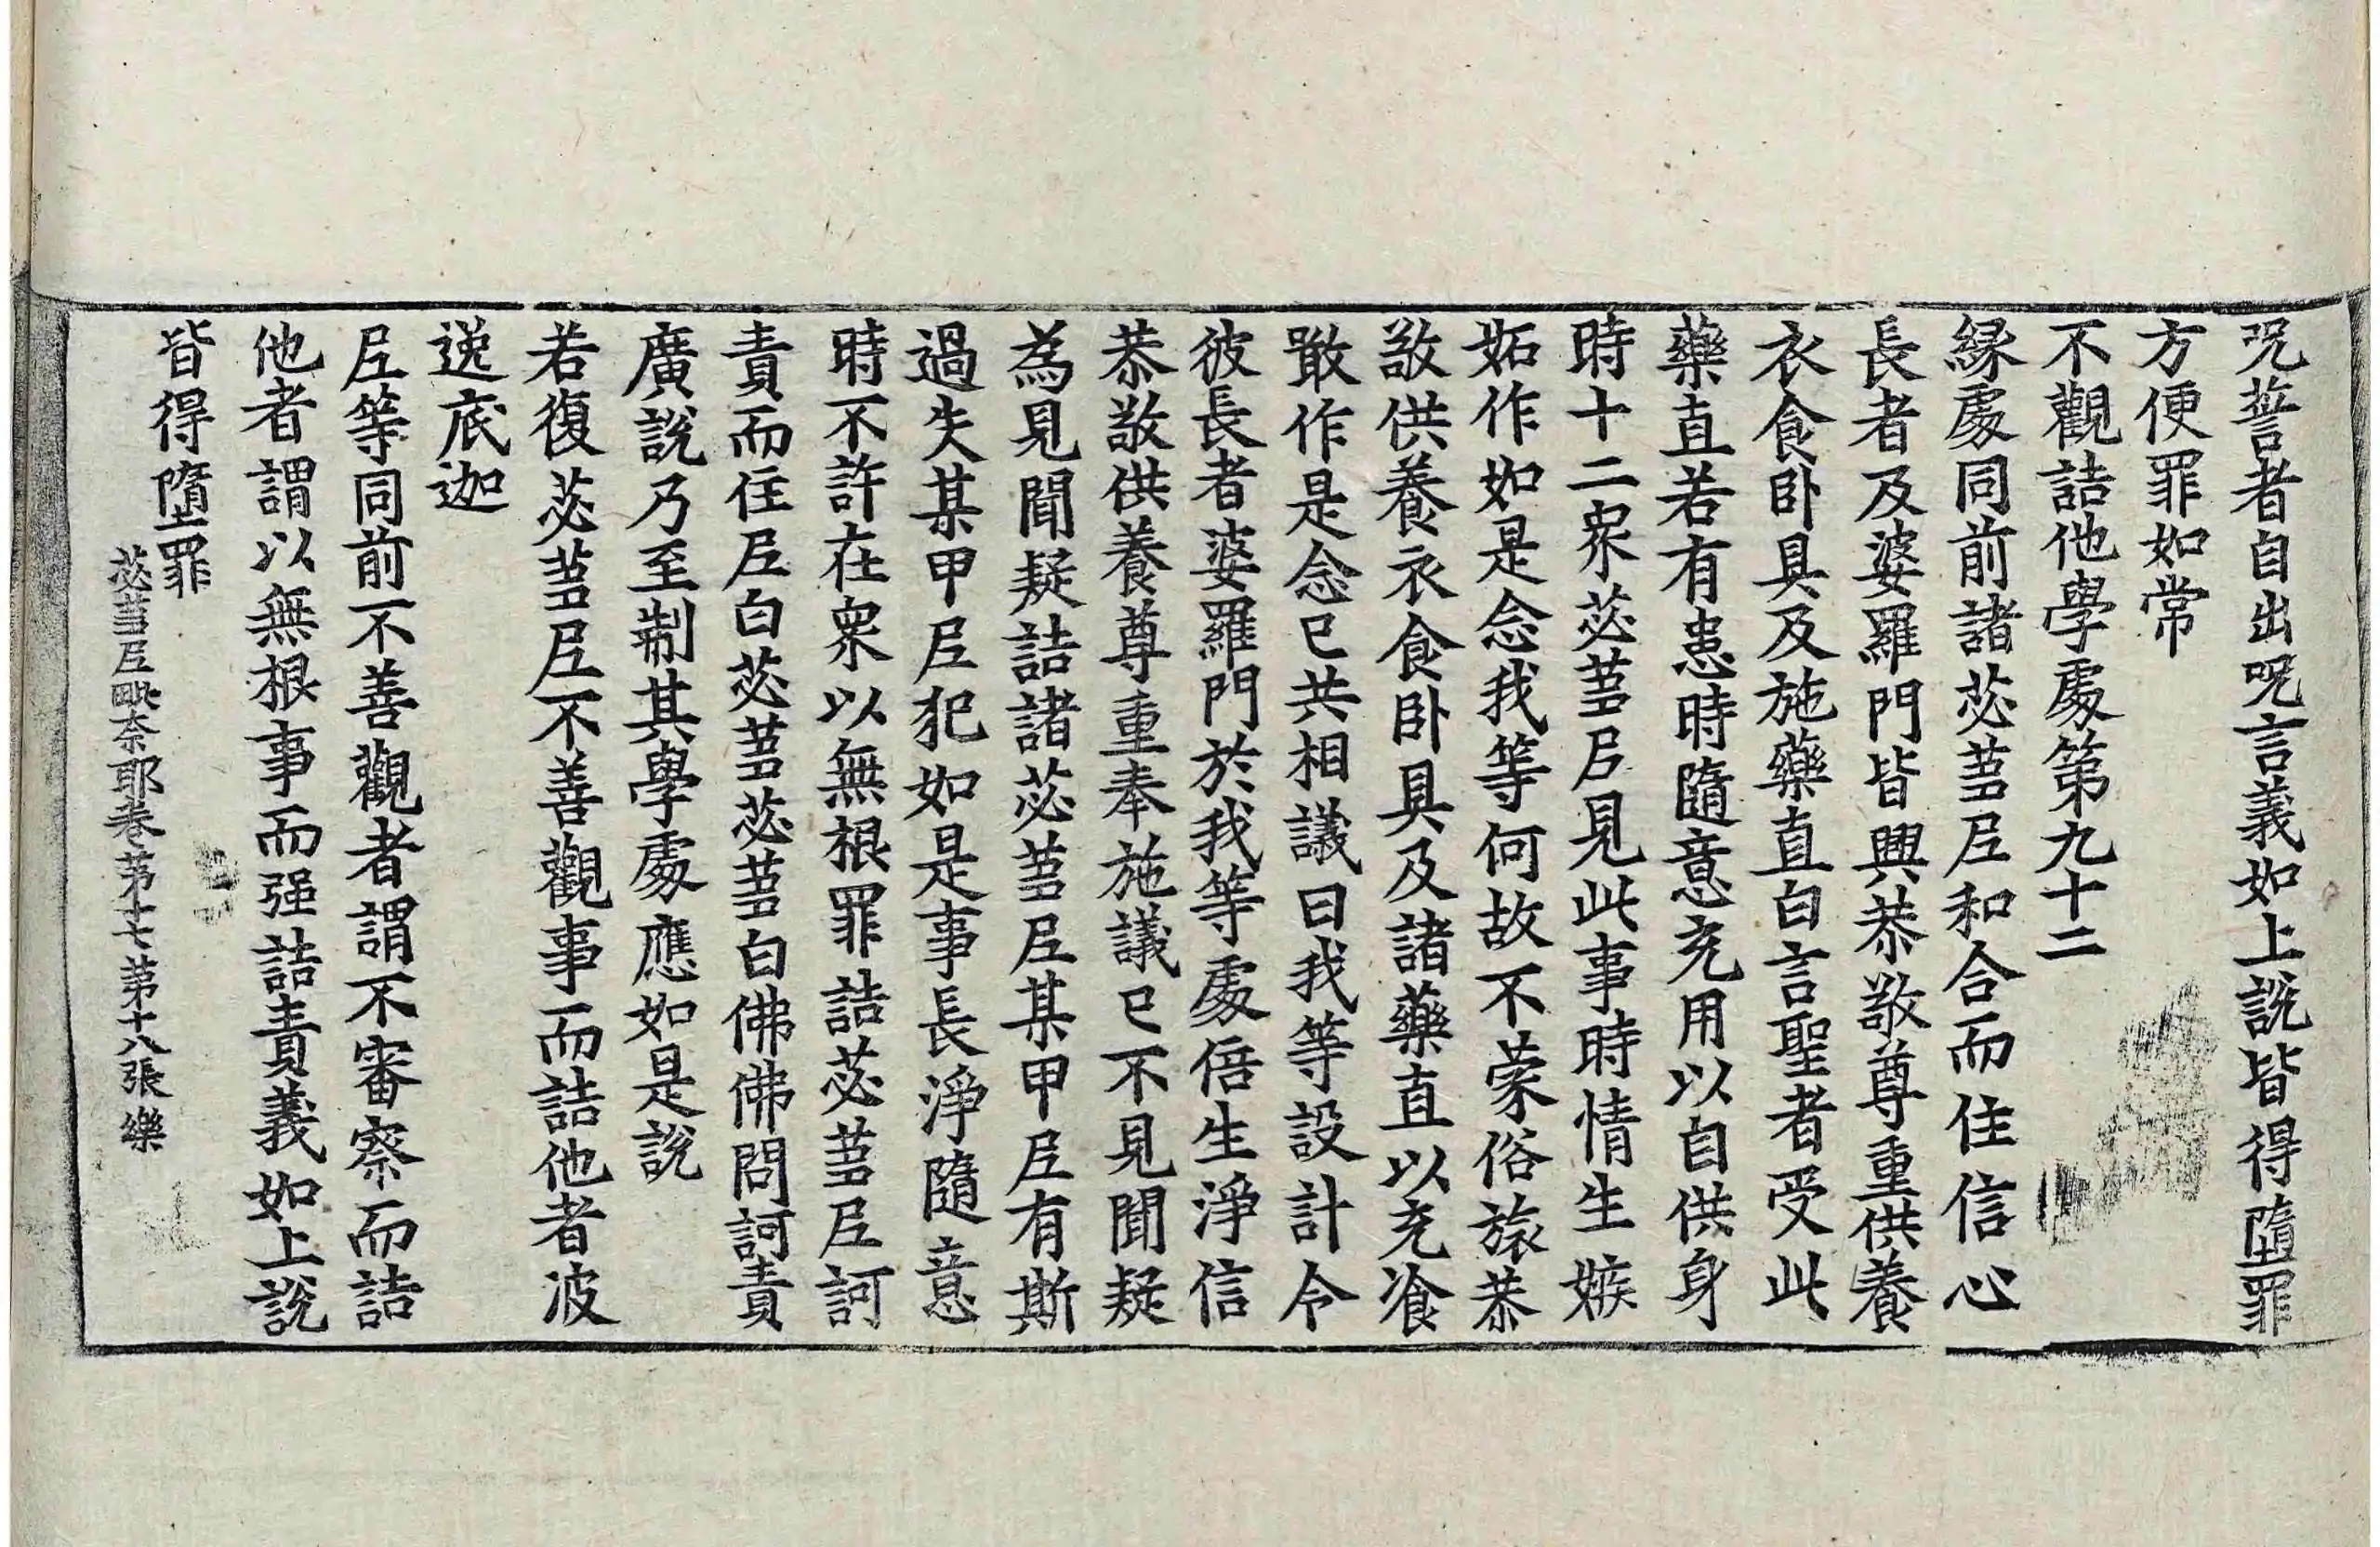 呪誓者自出呪言義如上說皆得墮罪
方便罪如常
不觀詰他學處第九十二
緣處同前諸苾蒭尼和合而住信心
長者及婆羅門皆興恭敬尊重供養
衣食卧具及施藥直白言聖者受此
藥直若有患時隨意充用以自供身
時十二衆苾蒭尼見此事時情生嫉
妬作如是念我等何故不蒙俗旅恭
敬供養衣食卧具及諸藥直以充飡
噉作是念已共相議曰我等設計令
彼長者婆羅門於我等處倍生淨信
恭敬供養尊重奉施議已不見聞疑
為見聞疑詰諸苾蒭尼某甲尼有斯
過失某甲尼犯如是事長淨隨意
時不許在衆以無根罪詰苾蒭尼訶
責而住尼白苾蒭苾蒭白佛佛問訶責
廣說乃至制其學處應如是說
若復苾蒭尼不善觀事而詰他者波
逸底迦
尼等同前不善觀者謂不審察而詰
他者謂以無根事而强詰責義如上說
皆得墮罪
苾蒭尼毗奈耶卷第十七 第十八張 樂